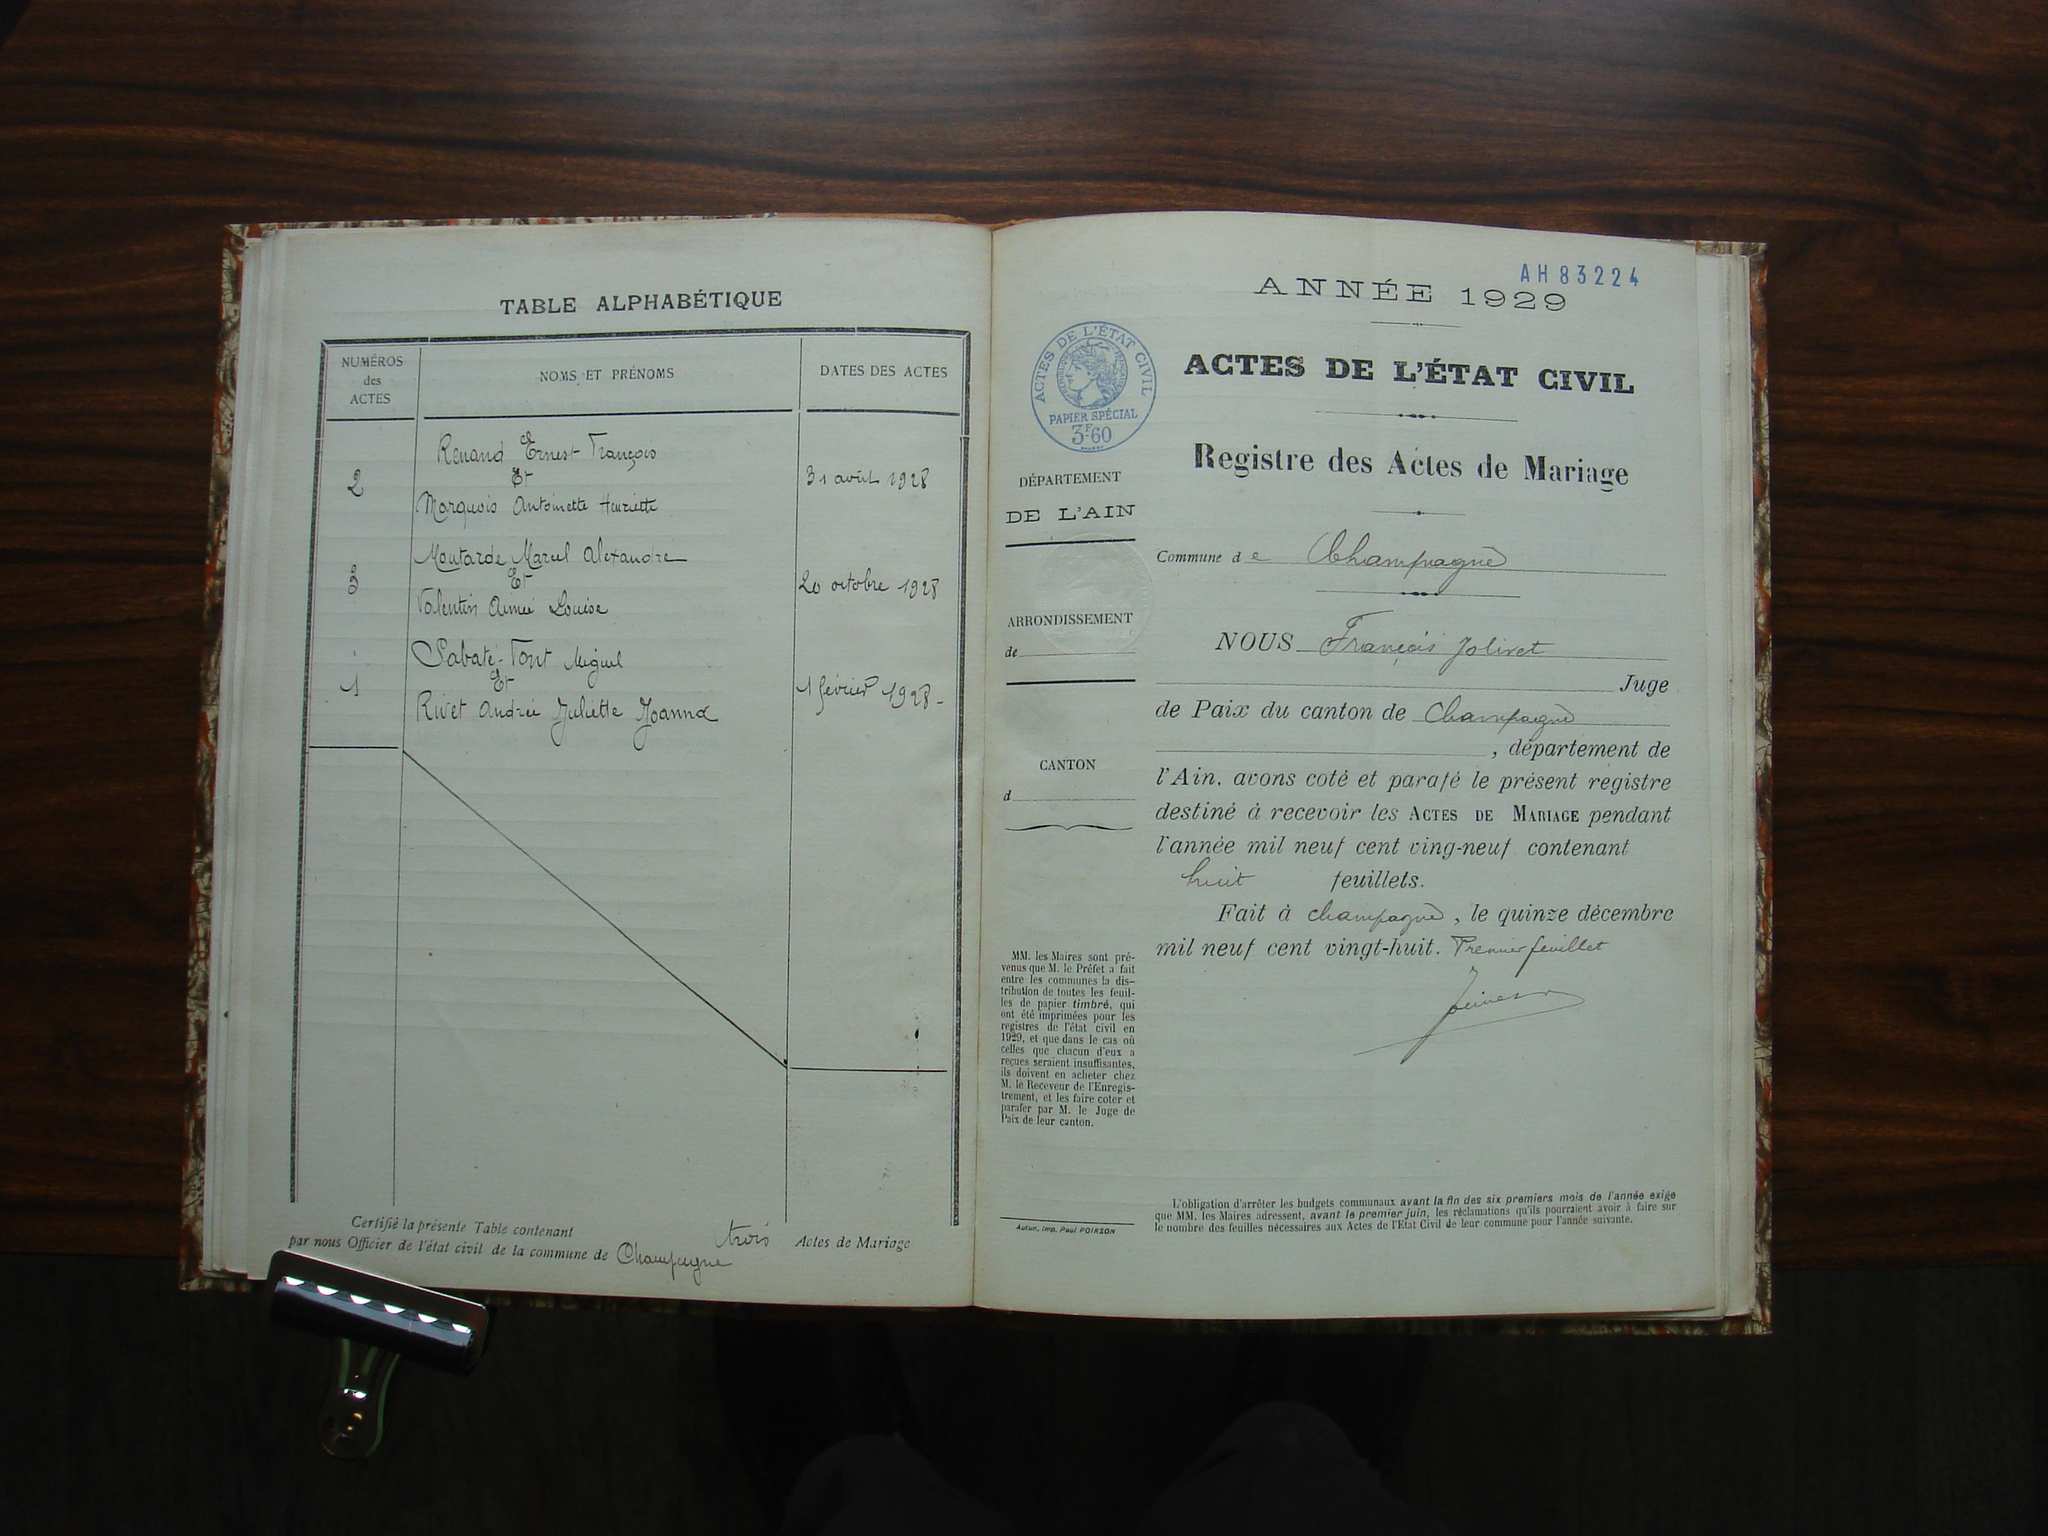 TABLE ALPHABÉTIQUE
NUMÉROS
des
ACTES
NOMS ET PRÉNOMS
DATES DES ACTES
Renand Ernest François
2
Et
31 août 1928
Marquois Antoinette Henriette
Moutarde Marcel Alexandre
3
Et
20 octobre 1928
Valentin Aimée Louise
Sabaté-Font Miguel
1
Et
1 février 1928-
Rivet Andrée Juliette Joanna
Certifié la présente Table contenant trois Actes de Mariage
par nous Officier de l'état civil de la commune de Champagne
AH83224
ANNÉE 1929
ACTES DE L'ÉTAT CIVIL
PAPIER SPÉCIAL
3F-60
ACTES DE L'ÉTAT CIVIL
Registre des Actes de Mariage
DÉPARTEMENT
DE L'AIN
Commune de Champagne
ARRONDISSEMENT
de
NOUS François Jolivet
Juge
de Paix du canton de Champagne
, département de
l'Ain, avons coté et parafé le présent registre
destiné à recevoir les ACTES DE MARIAGE pendant
l'année mil neuf cent ving-neuf contenant
huit feuillets.
Fait à Champagne, le quinze décembre
mil neuf cent vingt-huit. Premier feuillet
CANTON
d
MM. les Maires sont pré-
venus que M. le Préfet a fait
entre les communes la dis-
tribution de toutes les feuil-
les de papier timbré, qui
ont été imprimées pour les
registres de l'état civil en
1929, et que dans le cas où
celles que chacun d'eux a
reçues seraient insuffisantes,
ils doivent en acheter chez
M. le Receveur de l'Enregis-
trement, et les faire coter et
parafer par M. le Juge de
Paix de leur canton.
Autun, Imp. Paul POIRSON
L'obligation d'arrêter les budgets communaux avant la fin des six premiers mois de l'année exige
que MM. les Maires adressent, avant le premier juin, les réclamations qu'ils pourraient avoir à faire sur
le nombre des feuilles nécessaires aux Actes de l'Etat Civil de leur commune pour l'année suivante.